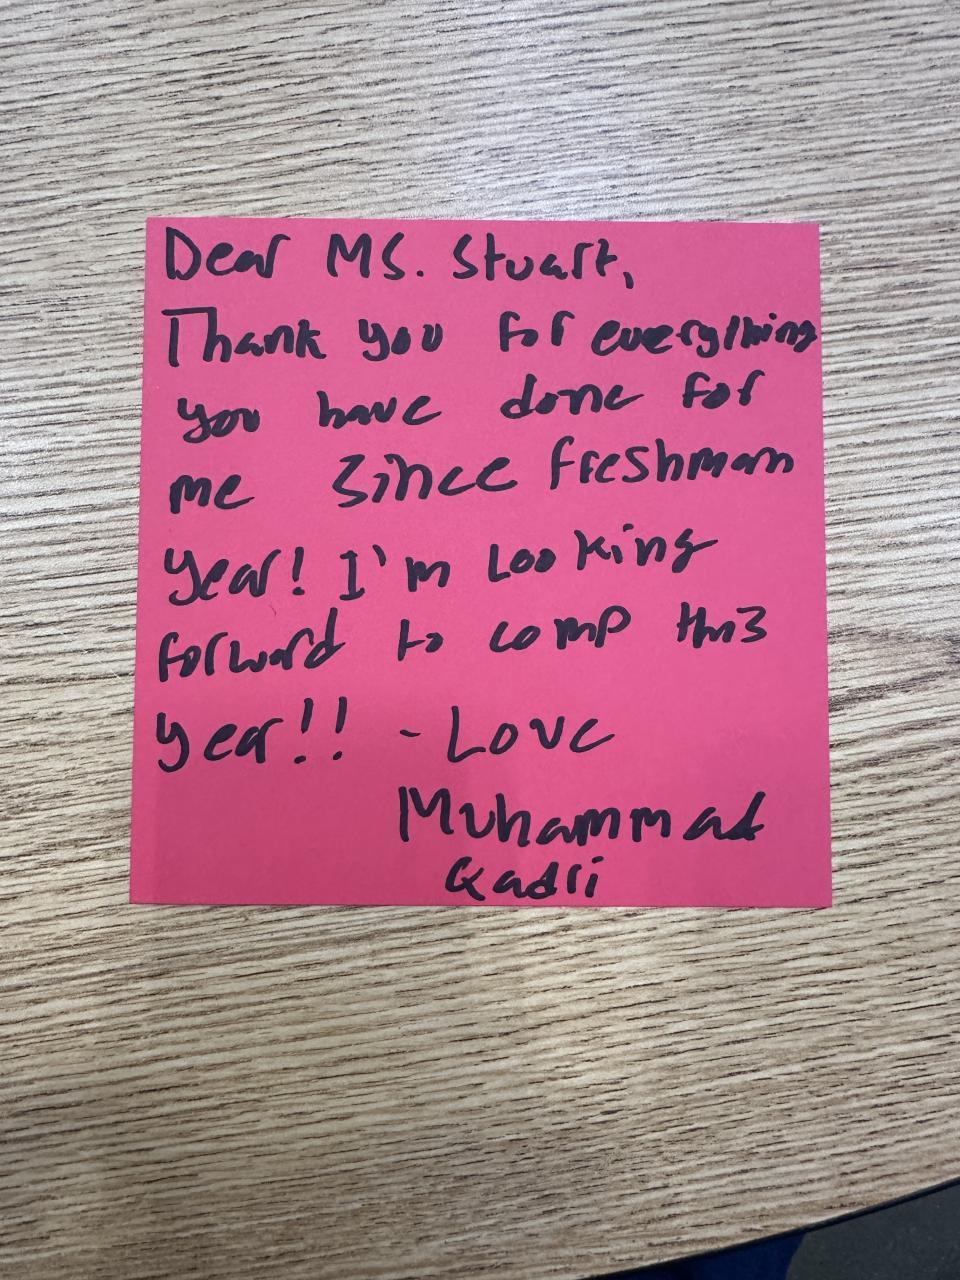 Dear Ms. Stuart,
Thank you for everything
you have done for
me since freshman
year! I'm Looking
forward to comp this
year!! - Love
Muhammad
Qadri